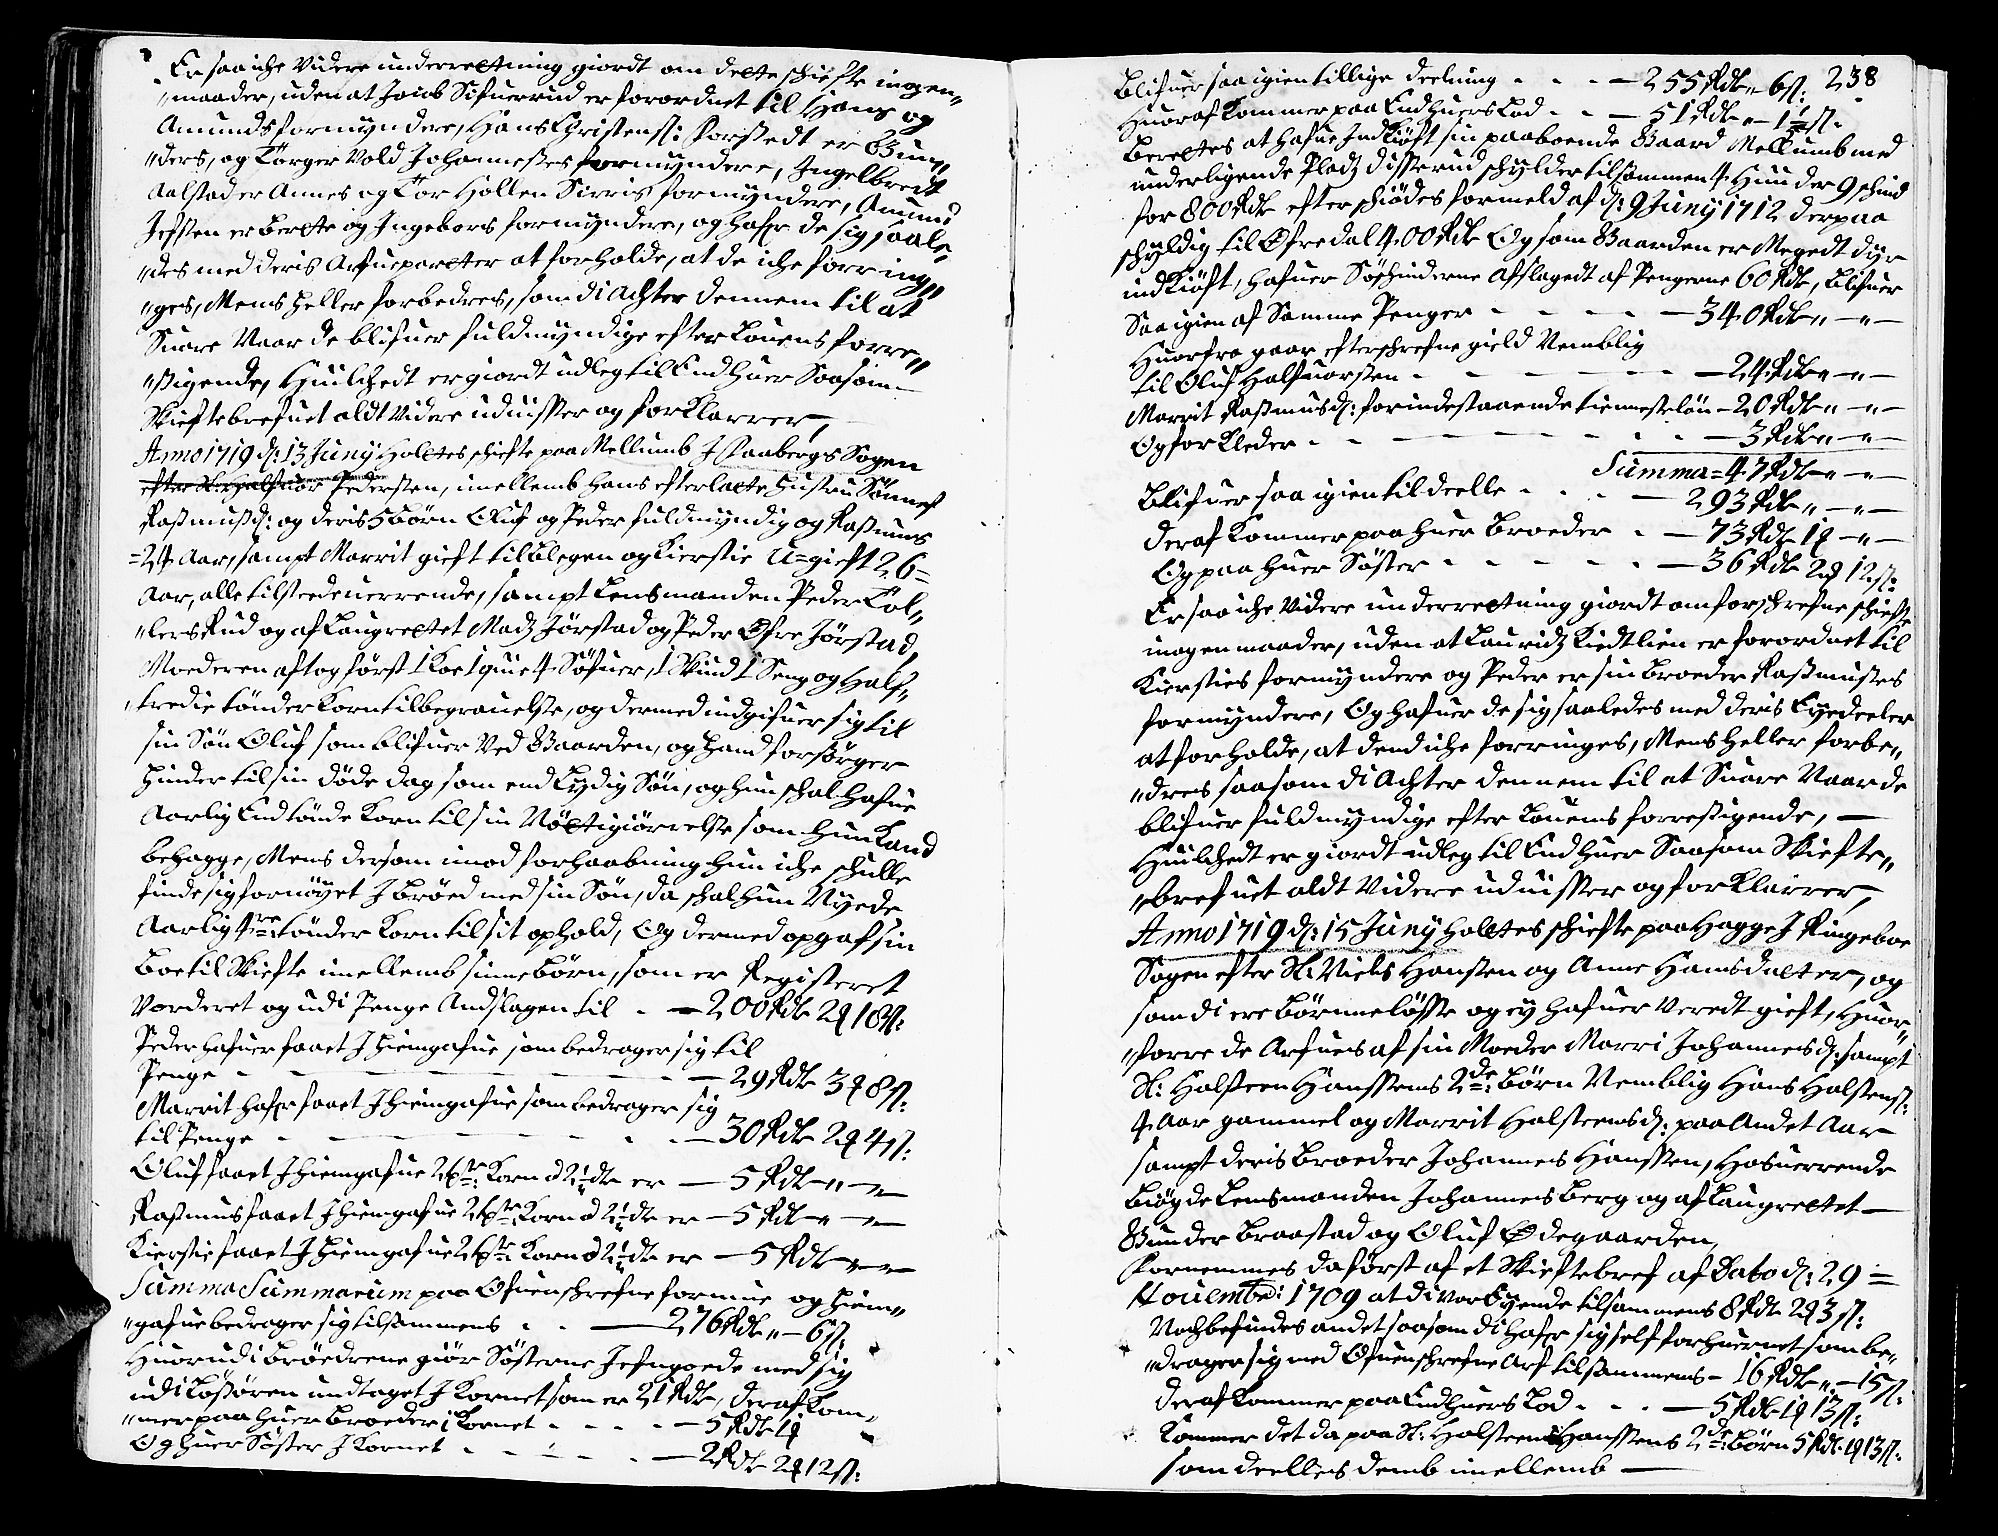 Er saa iche Videre underrectning giordt om dette schiefte i nogen„
„maader, uden at Jacob Sifuerrud er forordnet til Hans og
Amunds formyndere, Hans Christens: Korstedt er Gun„
„ders, og Torger Vold Johannesses formyndere, Ingelbredt
Aalstad er Annes og Tor Hollen Sirris formyndere, Amund
Jefsen er Berette og Ingebors formyndere, og hafr de sig saale„
„des med deris Arfueparter at forholde, at de iche forring„
„ges, Mens heller forbedres, som di Achter dennem til at
Suare Naar de blifuer fuldmyndige efter Louens forre„
„sigende, Huilchedt er giordt udleg til Endhuer Saasom
Skieftebrefuet aldt Videre uduisser og forKlarrer,
Anno 1719 d: 13 Juny Holtes schiefte paa Mellumb J Faabergs Sogen
efter Sl: Halfuor Pedersen, imellemb hans efterlatte hustru Sønnef
Rasmusd: og deris 5 børn Oluf og Peder fuldmyndig og Rasmus
=24 Aar, sampt Marrit gieft til Blegen og Kierstie U=gieft 26=
Aar, alle tilstedeuerrende, sampt Lensmanden Peder Tol„
„lersRud og af Laugrettet Madz Jørstad og Peder Øfre Jørstad,
Moederen aftog først 1 Koe 1 quie 4 Søfuer, 1 Skind 1 Seng og Half„
„tredie tønder Korn til begrauelse, og dermed indgifuer sig til
sin Søn Oluf som blifuer Ved Gaarden, og hand forsørger
hinder til sin døde dag som end Lydig Søn, og hun schal hafue
Aarlig End tønde Korn til sin Nøttigiørrelse som hun Kand
behagge, Mens dersom imod forhaabning hun iche schulle
finde sig fornøyet J brøed med sin Søn, da schal hun Nyede
Aarlig 4re tønder Korn til sit ophold, Og dermed opgaf sin
Boe til Skiefte imellemb sinne børn, som er Registeret
Vorderet og udi Penge Andslagen til - — 200 Rdr 2 18s:
Peder hafuer faaet J hiemgafue som bedrager sig til
Penge - — 29 Rdr 3 8s:
Marrit hafr faaet J hiemgafue som bedrager sig
til Penge - — 30 Rdr 2 4s:
Oluf faaet J hiemgafue 2 Korn a 2½ dr er — 5 Rdr „ —
Rasmus faaet J hiemgafue 2 Korn a 2½ dr er — 5 Rdr „ —
Kierstie faaet J hiemgafue 2 Korn a 2½ dr er — 5 Rdr —
Summa Summarum paa Ofuenschrefne formue og hiem„
„gafue bedrager sig tilsammens - — 276 Rdr „ — 6s:
Huorudi brøedrene giør Søsterne Jefngoede med sig
udi Løsøren undtaget J Kornet som er 21 Rdr, deraf Kom„
„mer paa huer Broeder i Kornet - — 5 Rdr 1
Og huer Søster J Kornet - — 2 Rdr 2 12s:
Blifuer saa igien til lige deelning - — 255 Rdr „ 6s: 238
Huoraf Kommer paa Endhuers Lod - — 51 Rdr „ — 1 s:
Berettes at hafue IndKiøft sin paaboende Gaard Mellumb med
underligende Pladz Disserud schylder tilsammen 4 Huuder 9 schind
for 800 Rdr efter schiødes formeld af d: 9 Juny 1712 derpaa
schyldig til Øfredal 400 Rdr Og som Gaarden er Megedt dyr
indKiøft, hafuer Søschinderne Afslagedt af Pengerne 60 Rdr, blifuer
Saa igien af Samme Penger - — 340 Rdr „ — „ —
Huorfra gaar efterschrefne gield Nemblig
til Oluf Halfuorsen - — 24 Rdr „ — „ —
Marrit Rasmusd: for indestaaende tienneste løn — 20 Rdr „ — „ —
Og for Kleder - — 3 Rdr „ — „ —
Summa = 47 Rdr „ — „ —
Blifuer saa igien til deelle - — 293 Rdr „ — „ —
Deraf Kommer paa huer Broeder - — 73 Rdr 1 — „ —
Og paa huer Søster - — 36 Rdr 2 12s:
Er saa iche Videre underrectning giordt om forschrefne schiefte
i nogen maader, uden at Lauridz Kiedtlien er forordnet til
Kiersties formyndere og Peder er sin Broeder Rasmusses
formyndere, Og hafuer de sig saaledes med deris Eyedeeler
at forholde, at dend iche forringes, Mens heller forbe„
„dres saasom di Achter dennem til at Suare Naar de
blifuer fuldmyndige efter Louens forresigende, —
Huilchedt er giordt udleg til Endhuer Saasom Skiefte„
„brefuet aldt Videre uduisser og forKlarrer,
Anno 1719 d: 15 Juny holtes schiefte paa Hagge J Ringeboe
Sogen efter Sl: Niels Hansen og Anne Hansdatter, og
som di ere børnneløsse og ey hafuer Veredt gieft, Huor„
„forre de Arfues af sin Moeder Marri Johannesd: sampt
Sl: Halsteen Hanssens 2de børn Nemblig Hans Halstens:
4 Aar gammel og Marrit Halsteensd: paa Andet Aar
sampt deris broeder Johannes Hanssen, Hosuerrende
bøygde Lensmanden Johannes Berg og af Laugrettet —
Gunder Braastad og Oluf Ødegaarden,
Fornemmes da først af et Skieftebref af Dato d: 29 =
Nouembr: 1709 at di var Eyende tilsammens 8 Rdr 2 3s:
Noch befindes andet saasom di hafr sig self forhueruet som be„
„drager sig med Ofuenschrefne Arf tilsammens — 16 Rdr „ — 15s:
Deraf Kommer paa Endhuers Lod - — 5 Rdr 1 13s:
Kommer det da paa Sl: Halsteen Hanssens 2de børn 5 Rdr 1 13s:
som deelles demb imellemb —